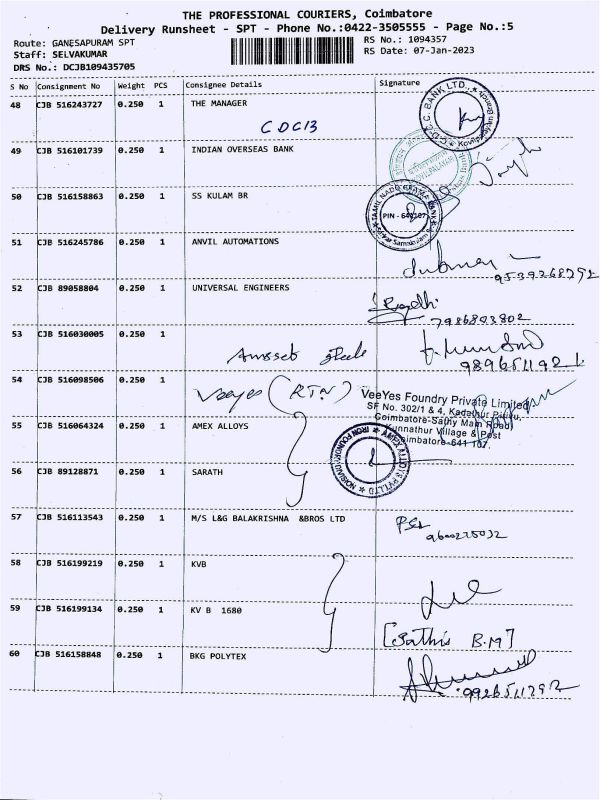 THE PROFESSIONAL COURIERS, Coimbatore
Delivery Runsheet - SPT - Phone No.:0422-3505555 - Page No.:5
Route: GANESAPURAM SPT
RS No.: 1094357
Staff: SELVAKUMAR
RS Date: 07-Jan-2023
DRS No.: DCJB109435705
S No Consignment No Weight PCS Consignee Details Signature
48 CJB 516243727 0.250 1 THE MANAGER
C. BANK LTD.,
CDCB
49 CJB 516101739 0.250 1 INDIAN OVERSEAS BANK
50 CJB 516158863 0.250 1 SS KULAM BR
TAMIL NADU GRAMA BANK
PIN - 641107
51 CJB 516245786 0.250 1 ANVIL AUTOMATIONS
9539268792
52 CJB 89058804 0.250 1 UNIVERSAL ENGINEERS
7986803802
53 CJB 516030005 0.250 1
steels
54 CJB 516098506 0.250 1 Veeyes (RTN)
VeeYes Foundry Private Limited
SF No. 302/1 & 4, Kadathur Pirivu,
Coimbatore-Sathy Main Road
Kunnathur Village & Post
Coimbatore-641 107.
55 CJB 516064324 0.250 1 AMEX ALLOYS
AMEX ALLOYS PVT LTD
IRON FOUNDRY DIVISION
56 CJB 89128871 0.250 1 SARATH
57 CJB 516113543 0.250 1 M/S L&G BALAKRISHNA &BROS LTD
9600275032
58 CJB 516199219 0.250 1 KVB
59 CJB 516199134 0.250 1 KV B 1680
[Sathis B.M]
60 CJB 516158848 0.250 1 BKG POLYTEX
9926511292